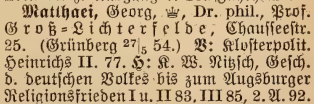 Matthaei, Georg, ♕, Dr. phil., Prof.
Groß-Lichterfelde, Chausseestr.
25. (Grünberg 27/5 54.) V: Klosterpolit.
Heinrichs II. 77. H: K. W. Nitzsch, Gesch.
d. deutschen Volkes bis zum Augsburger
Religionsfrieden I u. II 83, III 85, 2. A. 92.